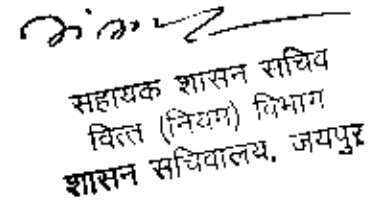 सहायक शासन सचिव
वित्त (नियम) विभाग
शासन सचिवालय, जयपुर